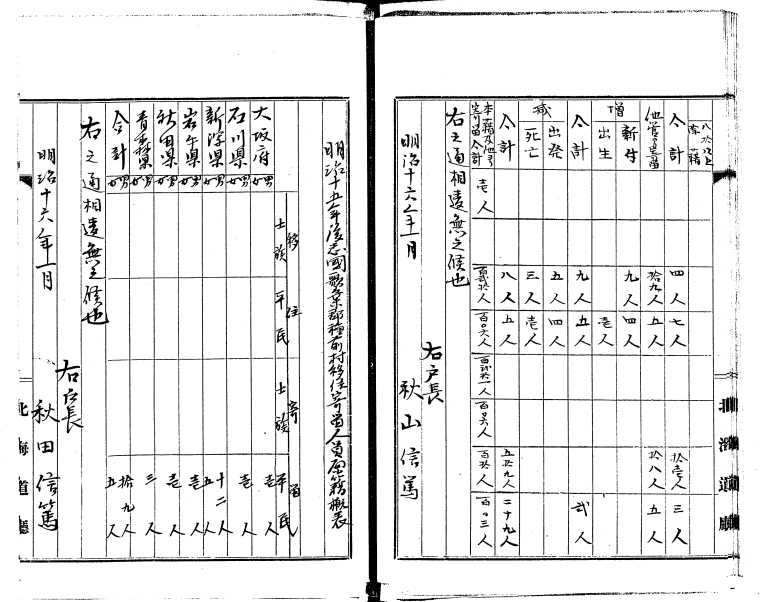 八十以上
除籍
合計 四人 七人 拾壱人 三人
他管ゟ寄留 拾九人 五人 拾八人 五人
増
新付 九人 四人
出生 壱人
合計 九人 五人 弐人
減
出発 五人 四人
死亡 三人 壱人
合計 八人 五人 五拾九人 二十九人
本籍及他ゟ寄留合計 壱人 百弐拾人 百〇六人 百弐拾一人 百〇六人 百拾人 百〇三人
右之通相違無之候也
明治十六年一月
右戸長
秋山信篤
北海道廳
明治十五年後志國歌棄郡種前村移住寄留人員原籍概表
移住 寄留
士族 平民 士族 平民
大坂府 男女 壱人
石川県 男女 壱人
新潟県 男女 十二人 五人
岩手県 男女 壱人
秋田県 男女 壱人
青森県 男女 三人
合計 男女 拾九人 五人
右之通相違無之候也
明治十六年一月
右戸長
秋田信篤
北海道廳